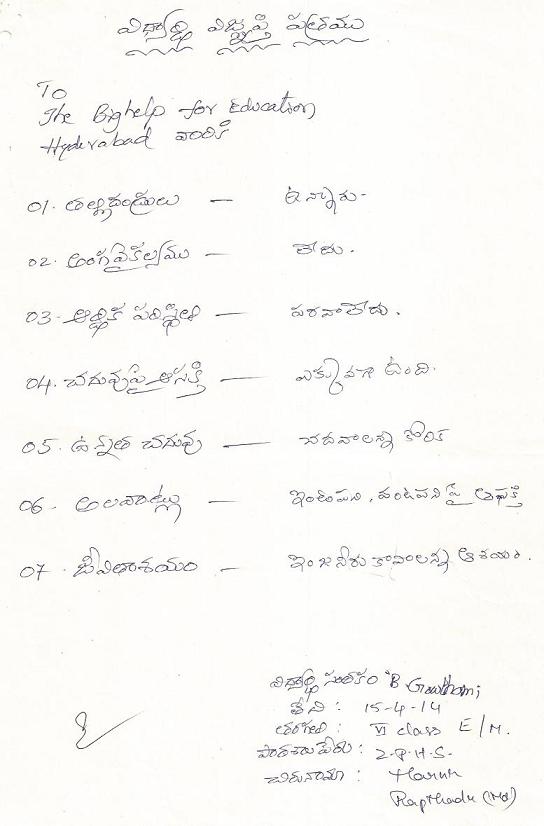 విద్యార్థి విజ్ఞప్తి పత్రము
To
The Bighelp for Education
Hyderabad వారికి
01. తల్లిదండ్రులు — ఉన్నారు.
02. అంగవైకల్యము — లేదు.
03. ఆర్థిక పరిస్థితి — పరవాలేదు.
04. చదువుపై ఆసక్తి — ఎక్కువగా ఉంది.
05. ఉన్నత చదువు — చదవాలన్న కోరిక
06. అలవాట్లు — ఇంటిపని, వంటపని పై ఆసక్తి
07. జీవితాశయం — ఇంజనీరు కావాలన్న ఆశయం.
విద్యార్థి సంతకం B Gowthami
తేది : 15-4-14
తరగతి : VI class E/M.
పాఠశాల పేరు : Z.P.H.S.
చిరునామా :
Rapthadu